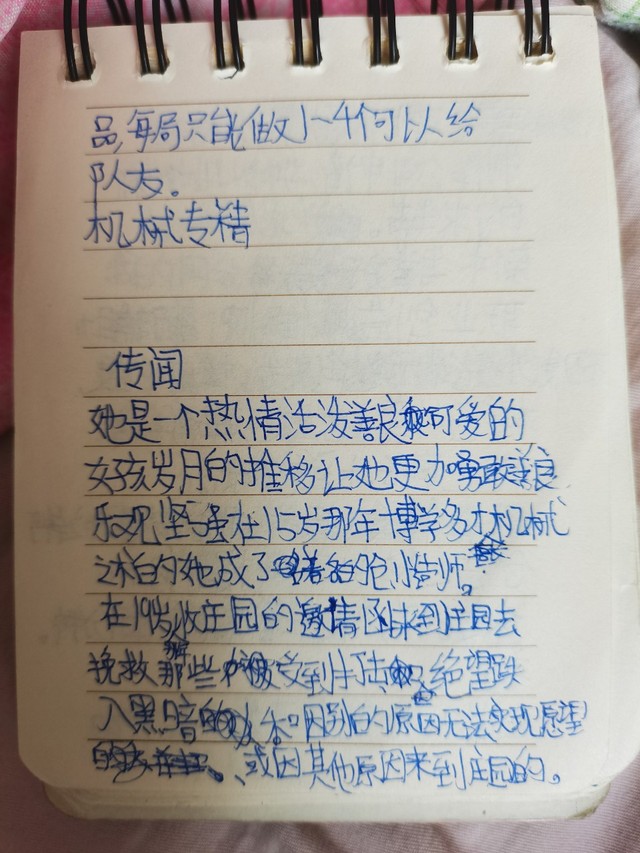 品,每局只能做1~4个可以给
队友。
机械专精
传闻
她是一个热情活泼善良可爱的
女孩岁月的推移让她更加勇敢善良
乐观坚强在15岁那年博学多才机械
之术的她成了著名的创造师。
在19岁收庄园的邀请函来到庄园去
挽救那些被受到 绝望跌
入黑暗的人和因别的原因无法实现愿望
的 。或因其他原因来到庄园的。